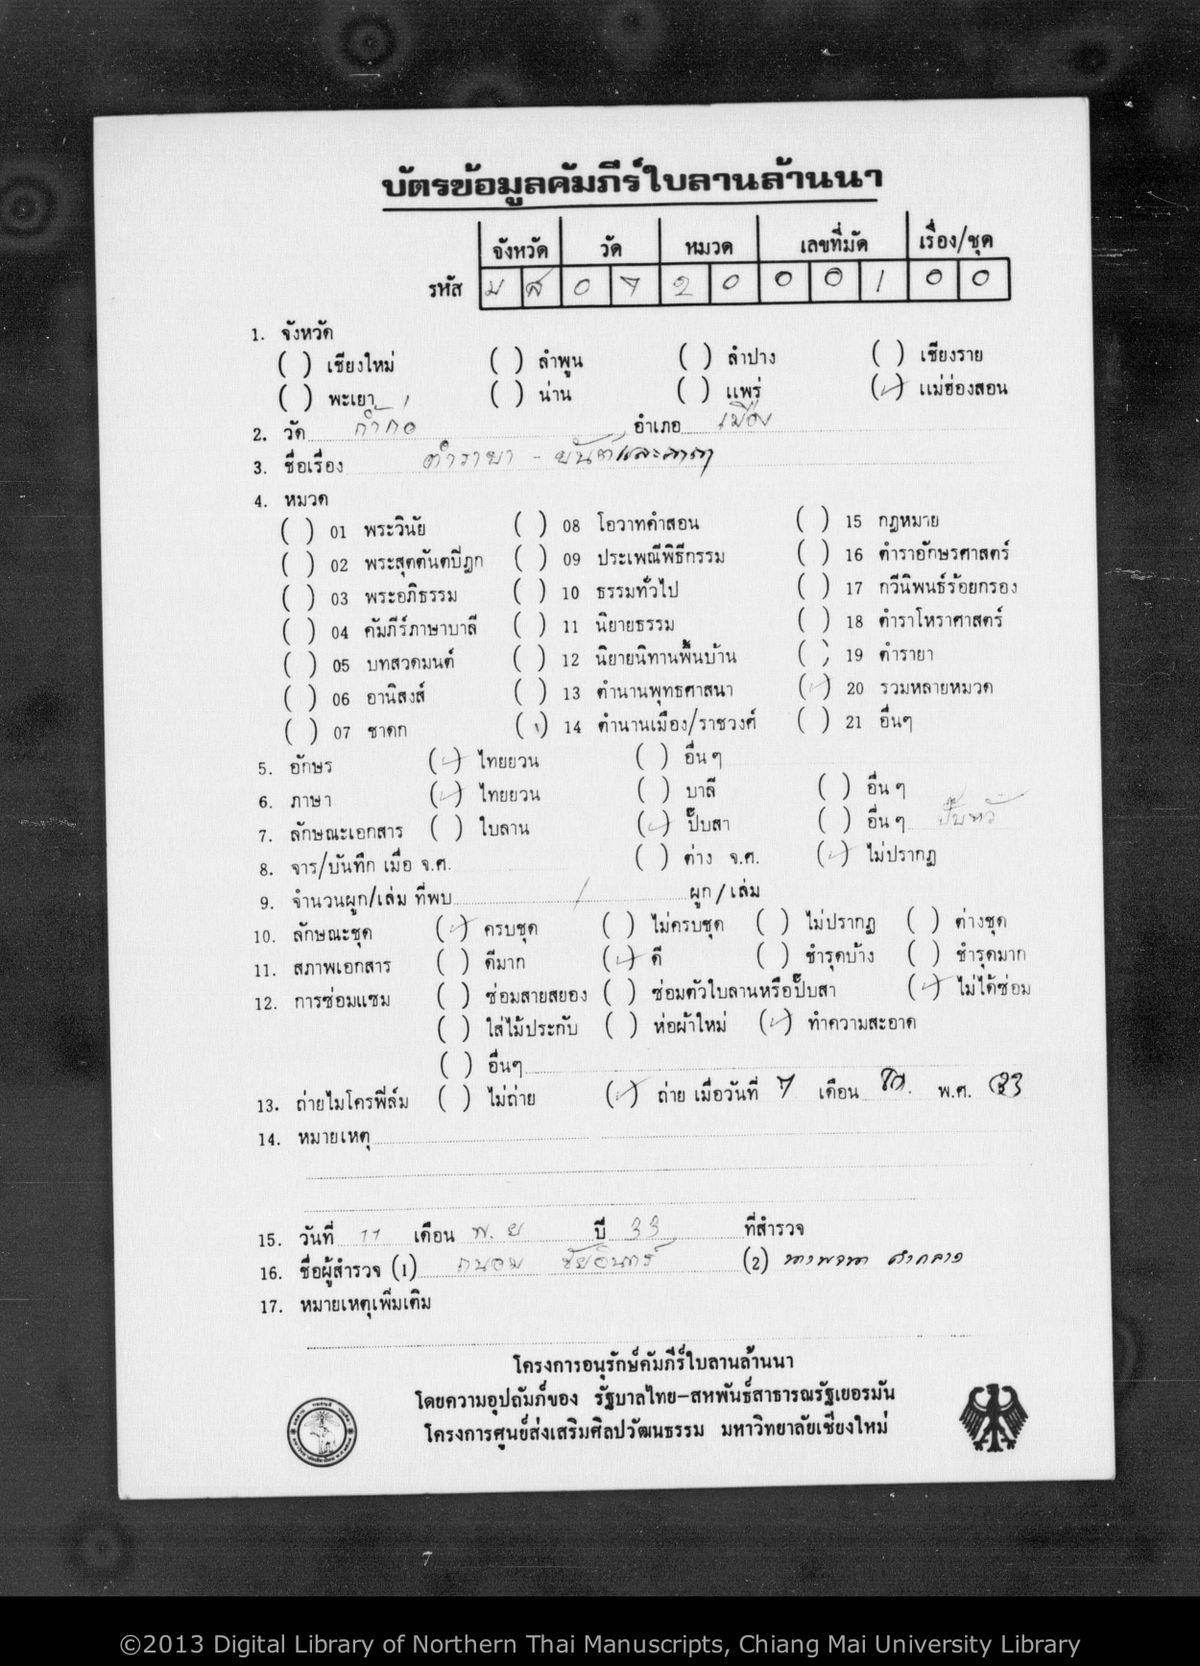 บัตรข้อมูลคัมภีร์ใบลานล้านนา
จังหวัด วัด หมวด เลขที่มัด เรื่อง/ชุด
รหัส ม ส 0 7 2 0 0 0 1 0 0
1. จังหวัด
( ) เชียงใหม่ ( ) ลำพูน ( ) ลำปาง ( ) เชียงราย
( ) พะเยา ( ) น่าน ( ) แพร่ (✓) แม่ฮ่องสอน
2. วัด ก้ำก่อ อำเภอ เมือง
3. ชื่อเรื่อง ตำรายา - ยันต์และคาถา
4. หมวด
( ) 01 พระวินัย ( ) 08 โอวาทคำสอน ( ) 15 กฎหมาย
( ) 02 พระสุตตันตปิฎก ( ) 09 ประเพณีพิธีกรรม ( ) 16 ตำราอักษรศาสตร์
( ) 03 พระอภิธรรม ( ) 10 ธรรมทั่วไป ( ) 17 กวีนิพนธ์ร้อยกรอง
( ) 04 คัมภีร์ภาษาบาลี ( ) 11 นิยายธรรม ( ) 18 ตำราโหราศาสตร์
( ) 05 บทสวดมนต์ ( ) 12 นิยายนิทานพื้นบ้าน ( ) 19 ตำรายา
( ) 06 อานิสงส์ ( ) 13 ตำนานพุทธศาสนา (✓) 20 รวมหลายหมวด
( ) 07 ชาดก ( ) 14 ตำนานเมือง/ราชวงศ์ ( ) 21 อื่นๆ
5. อักษร (✓) ไทยยวน ( ) อื่น ๆ
6. ภาษา (✓) ไทยยวน ( ) บาลี ( ) อื่น ๆ
7. ลักษณะเอกสาร ( ) ใบลาน (✓) ปั๊บสา ( ) อื่น ๆ
8. จาร/บันทึก เมื่อ จ.ศ. ( ) ต่าง จ.ศ. (✓) ไม่ปรากฏ
9. จำนวนผูก/เล่ม ที่พบ 1 ผูก/เล่ม
10. ลักษณะชุด (✓) ครบชุด ( ) ไม่ครบชุด ( ) ไม่ปรากฏ ( ) ต่างชุด
11. สภาพเอกสาร ( ) ดีมาก (✓) ดี ( ) ชำรุดบ้าง ( ) ชำรุดมาก
12. การซ่อมแซม ( ) ซ่อมสายสยอง ( ) ซ่อมตัวใบลานหรือปั๊บสา (✓) ไม่ได้ซ่อม
( ) ใส่ไม้ประกับ ( ) ห่อผ้าใหม่ (✓) ทำความสะอาด
( ) อื่นๆ
13. ถ่ายไมโครฟิล์ม ( ) ไม่ถ่าย (✓) ถ่าย เมื่อวันที่ 7 เดือน พ.ศ. 33
14. หมายเหตุ
15. วันที่ 11 เดือน พ.ย ปี 33 ที่สำรวจ
16. ชื่อผู้สำรวจ (1) ถนอม ชัยอินทร์ (2)
17. หมายเหตุเพิ่มเติม
โครงการอนุรักษ์คัมภีร์ใบลานล้านนา
โดยความอุปถัมภ์ของ รัฐบาลไทย-สหพันธ์สาธารณรัฐเยอรมัน
โครงการศูนย์ส่งเสริมศิลปวัฒนธรรม มหาวิทยาลัยเชียงใหม่
©2013 Digital Library of Northern Thai Manuscripts, Chiang Mai University Library